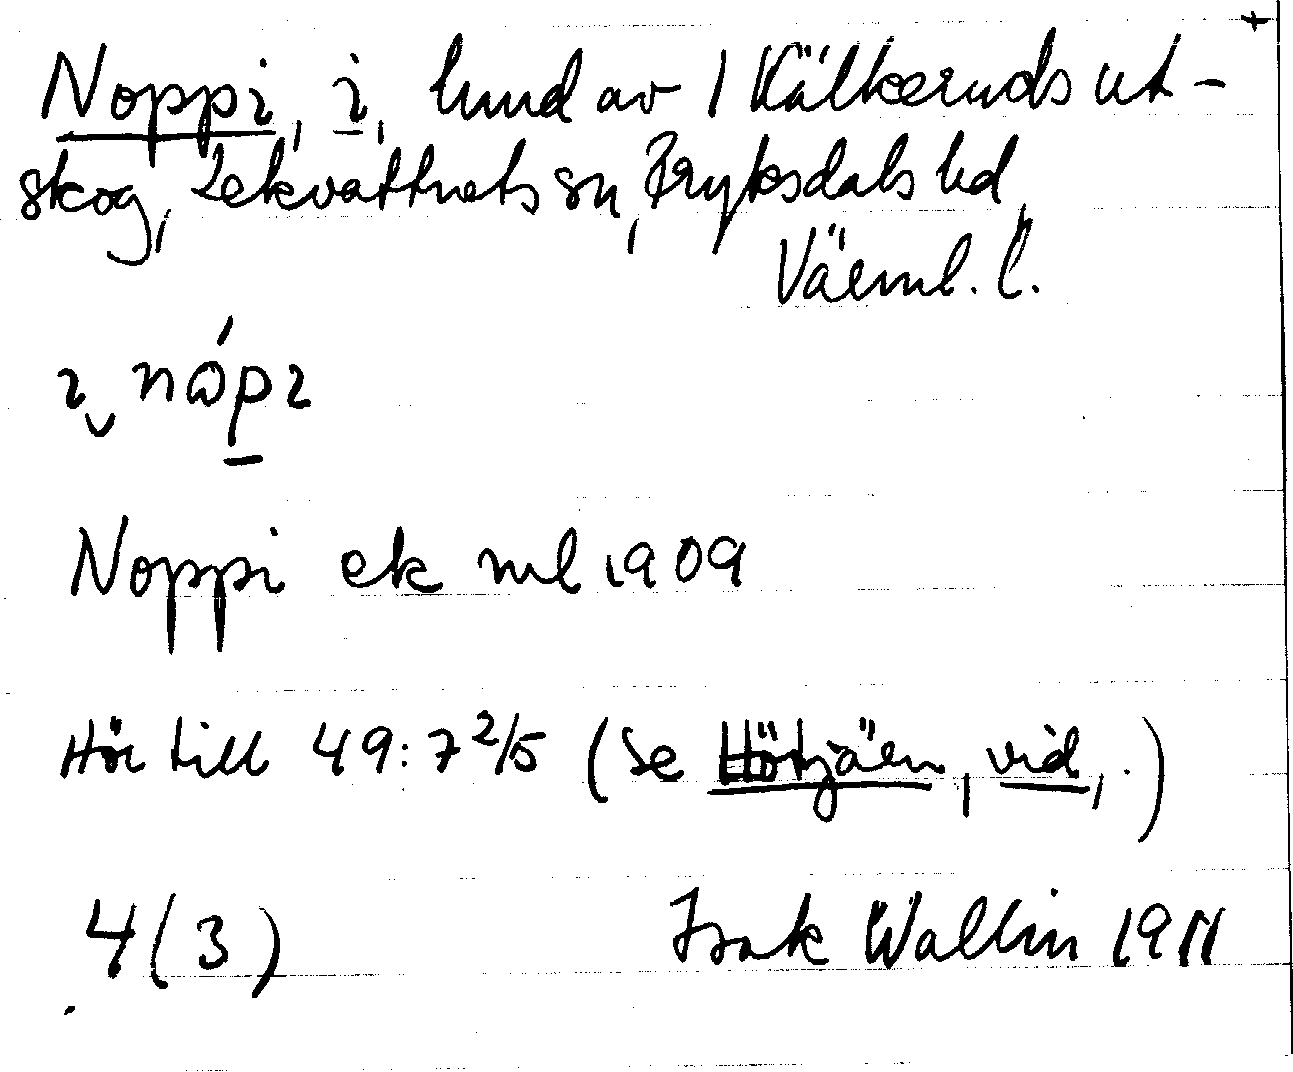 +
Noppi, i, hmd av 1 Kälkeruds ut-
skog, Lekvattnets sn, Fryksdals hd
Värml. l.
ı nǻpı
Noppi ek ml 1909
Hör till 49:7 2/5 (Se Hötjärn, vid, .)
4 (3) Isak Wallin 1911